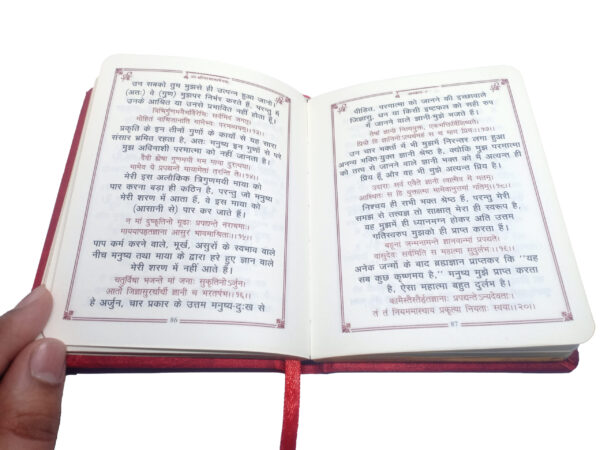 ॐ श्रीपरमात्मने नमः
उन सबको तुम मुझसे ही उत्पन्न हुआ जानो।
(अतः) वे (गुण) मुझपर निर्भर करते हैं, परन्तु मैं
उनके आश्रित या उनसे प्रभावित नहीं होता हूँ।
त्रिभिर्गुणमयैर्भावैरेभिः सर्वमिदं जगत्।
मोहितं नाभिजानाति मामेभ्यः परमव्ययम्॥१३॥
प्रकृति के इन तीनों गुणों के कार्यों से यह सारा
संसार भ्रमित रहता है, अतः मनुष्य इन गुणों से परे
मुझ अविनाशी परमात्मा को नहीं जानता है।
दैवी ह्येषा गुणमयी मम माया दुरत्यया।
मामेव ये प्रपद्यन्ते मायामेतां तरन्ति ते॥१४॥
मेरी इस अलौकिक त्रिगुणमयी माया को
पार करना बड़ा ही कठिन है, परन्तु जो मनुष्य
मेरी शरण में आता हैं, वे इस माया को
(आसानी से) पार कर जाते हैं।
न मां दुष्कृतिनो मूढाः प्रपद्यन्ते नराधमाः।
माययापहृतज्ञाना आसुरं भावमाश्रिताः॥१५॥
पाप कर्म करने वाले, मूर्ख, असुरों के स्वभाव वाले
नीच मनुष्य तथा माया के द्वारा हरे हुए ज्ञान वाले
मेरी शरण में नहीं आते हैं।
चतुर्विधा भजन्ते मां जनाः सुकृतिनोऽर्जुन।
आर्तो जिज्ञासुरर्थार्थी ज्ञानी च भरतर्षभ॥१६॥
हे अर्जुन, चार प्रकार के उत्तम मनुष्य-दुःख से
86
पीड़ित, परमात्मा को जानने की इच्छावाले
जिज्ञासु, धन या किसी इष्टफल को सही रूप
में जानने वाले ज्ञानी मुझे भजते हैं।
तेषां ज्ञानी नित्ययुक्त एकभक्तिर्विशिष्यते।
प्रियो हि ज्ञानिनोऽत्यर्थमहं स च मम प्रियः॥१७॥
उन चार भक्तों में भी मुझमें निरन्तर लगा हुआ
अनन्य भक्ति-युक्त ज्ञानी श्रेष्ठ है, क्योंकि मुझ परमात्मा
को तत्त्व से जानने वाले ज्ञानी भक्त को मैं अत्यन्त ही
प्रिय हूँ, और वह भी मुझे अत्यन्त प्रिय है।
उदाराः सर्व एवैते ज्ञानी त्वात्मैव मे मतम्।
आस्थितः स हि युक्तात्मा मामेवानुत्तमां गतिम्॥१८॥
निश्चय ही सभी भक्त श्रेष्ठ हैं, परन्तु मेरी
समझ से तत्त्वज्ञ तो साक्षात् मेरा ही स्वरूप है,
वह मुझमें ही ध्यानमग्न होकर अति उत्तम
गतिस्वरुप मुझको ही प्राप्त करता है।
बहूनां जन्मनामन्ते ज्ञानवान्मां प्रपद्यते।
वासुदेवः सर्वमिति स महात्मा सुदुर्लभः॥१९॥
अनेक जन्मों के बाद ब्रह्मज्ञान प्राप्तकर कि "यह
सब कुछ कृष्णमय है," मनुष्य मुझे प्राप्त करता
है, ऐसा महात्मा बहुत दुर्लभ है।
कामैस्तैस्तैर्हृतज्ञानाः प्रपद्यन्तेऽन्यदेवताः।
तं तं नियममास्थाय प्रकृत्या नियताः स्वया॥२०॥
87